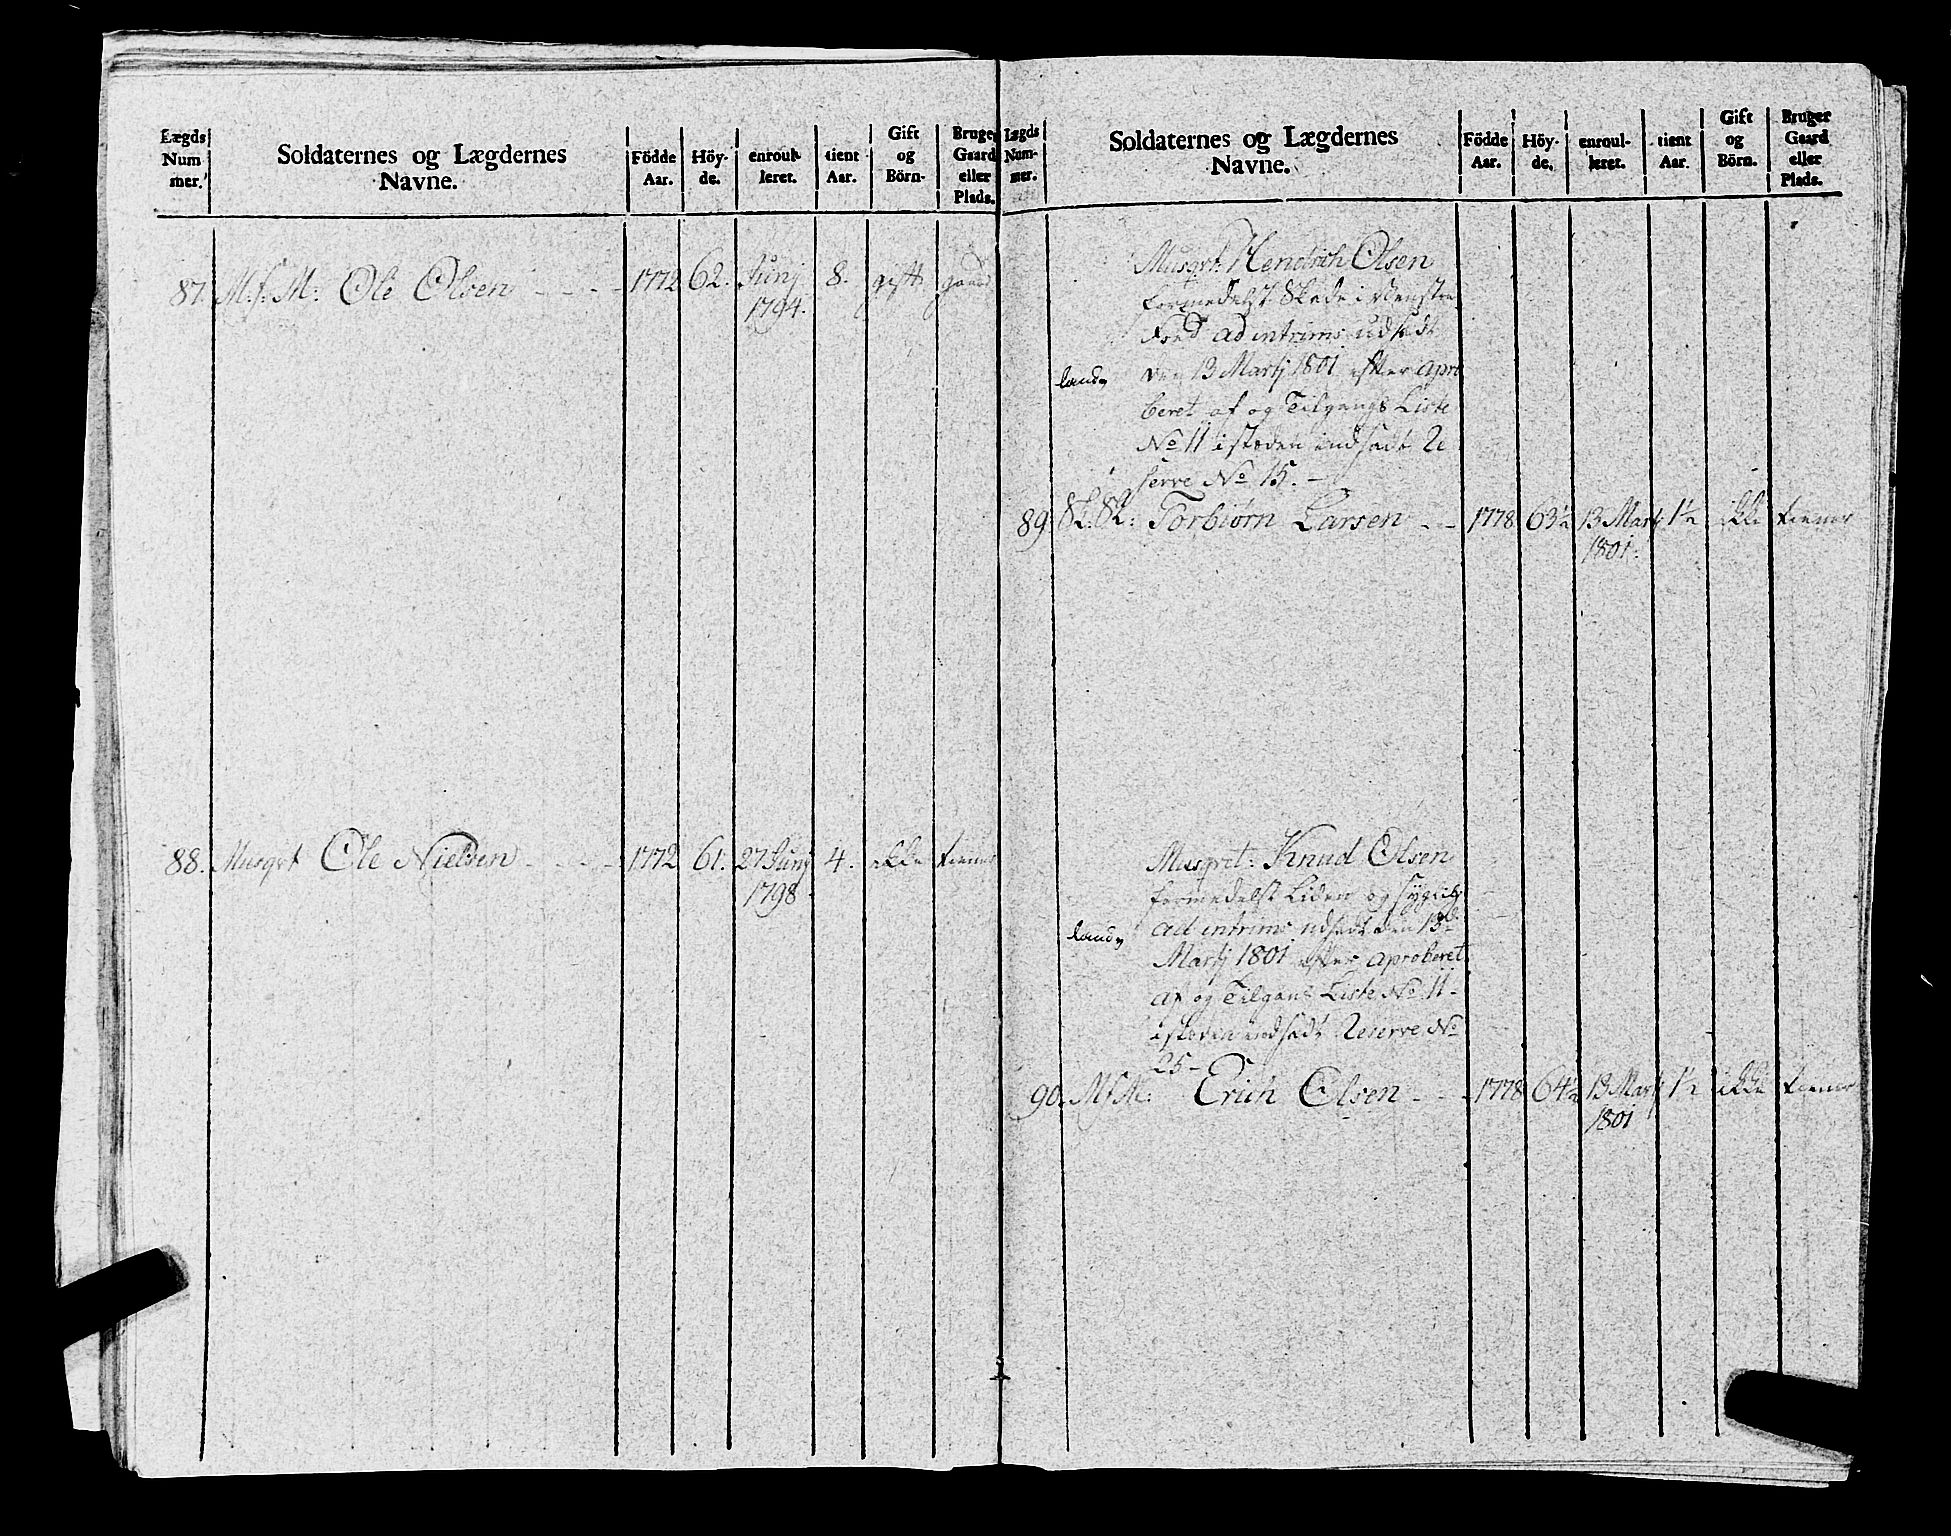 Lægds Num mer.
Soldaternes og Lægdernes Navne.
Födde Aar.
Höy- de.
enroul- leret.
tient Aar.
Gift og Börn.
Bruger Gaard eller Plads.
87. M:f:M: Ole Olsen - - - - 1772 62. Junj 8. gift gaard
1794.
88. Musqrt Ole Nielsen - - - - 1772 61. 27 Junj 4. ikke tiener
1798
Lægds Num- mer.
Soldaternes og Lægdernes Navne.
Födde Aar.
Höy- de.
enroul- leret.
tient Aar.
Gift og Börn.
Bruger Gaard eller Plads.
Musqrt: Hendrich Olsen
formedelst Skade i venstre
Foed ad intrims udsadt
den 13 Martj 1801 efter apro
beret af og Tilgangs Liste
No 11 i steden indsadt Re
serve No 15. -
89 Sk: Sk: Torbiørn Larsen - - 1778 63½ 13 Martj 1½ ikke tiener
1801.
Musqret: Knud Olsen
formedelst Liden og sygelig
ad intrims udsadt den 13de
Martj 1801 efter aproberet
af og Tilgans Liste No 11 -
i steden indsadt Reserve No
25 -
90. M:f:M: Erich Olsen - - - 1778 64½ 13 Martj 1½ ikke tiener
1801